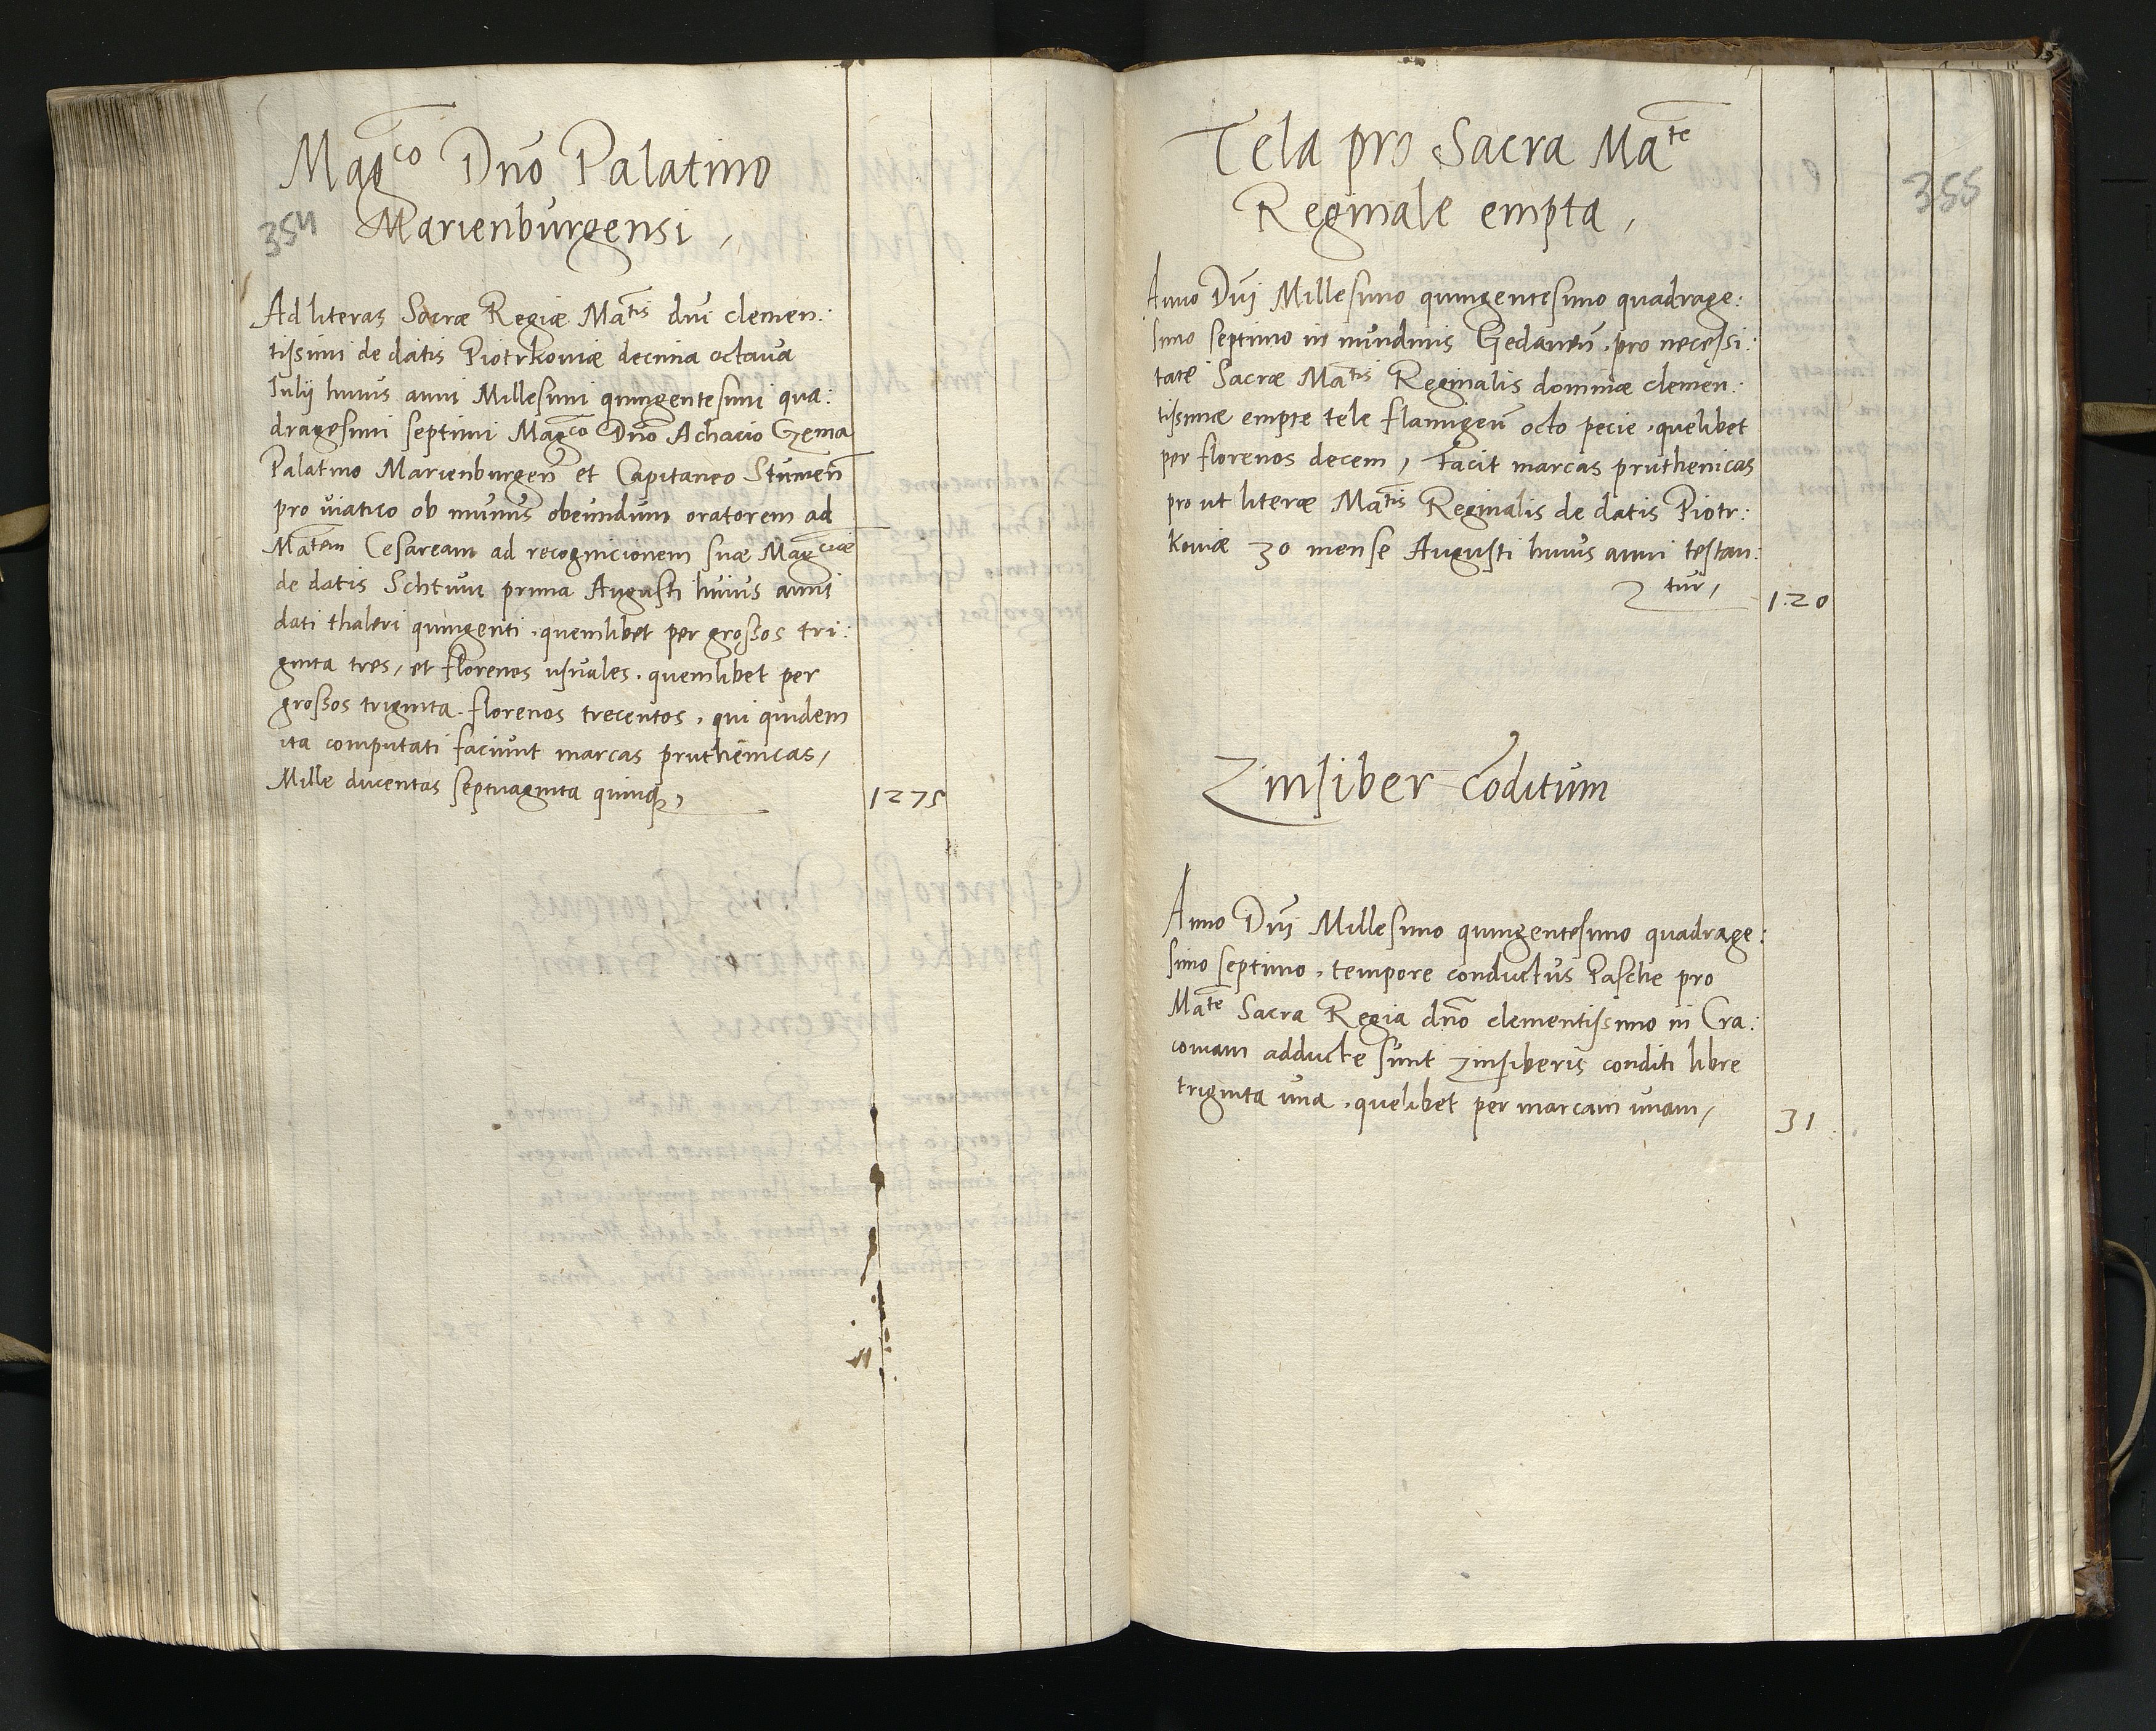 Mag^co Dño Palatino
354 Marienburgensi,
Ad literas Sacræ Regiæ Ma^tis dni clemen:
tissimi de datis Piotrkoviæ decima octava
Iulij huius anni Millesimi quingentesimi qua:
dragesimi septimi Mag^co Dño Achacio Czema
Palatino Marienburgeñ et Capitaneo Stumeñ
pro viatico ob munus obeundum oratorem ad
Ma^tem Cesaream ad recognicionem suæ Mag^ciæ
de datis Schtum prima Augusti huius anni
dati thaleri quingenti, quemlibet per grossos tri:
ginta tres, et florenos usuales, quemlibet per
grossos triginta florenos trecentos, qui quidem
ita computati faciunt marcas pruthenicas,
Mille ducentas septuaginta quinq₃, 1275
Tela pro Sacra Ma^te
Reginale empta, 355
Anno Dni Millesimo quingentesimo quadrage:
simo septimo in nundinis Gedaneñ, pro necessi:
tate Sacræ Ma^tis Reginalis dominæ clemen:
tissimæ empte tele flamigeñ octo pecie, quelibet
per florenos decem, facit marcas pruthenicas
pro ut literæ Ma^tis Reginalis de datis Piotr:
koviæ 30 mense Augusti huius anni testan:
tur, 120
Zinsiber Coditum
Anno Dni Millesimo quingentesimo quadrage:
simo septimo, tempore conductus Pasche pro
Ma^te Sacra Regia dño clementissimo in Cra:
coviam adducte sunt zinsiberis conditi libre
triginta una, quelibet per marcam unam, 31